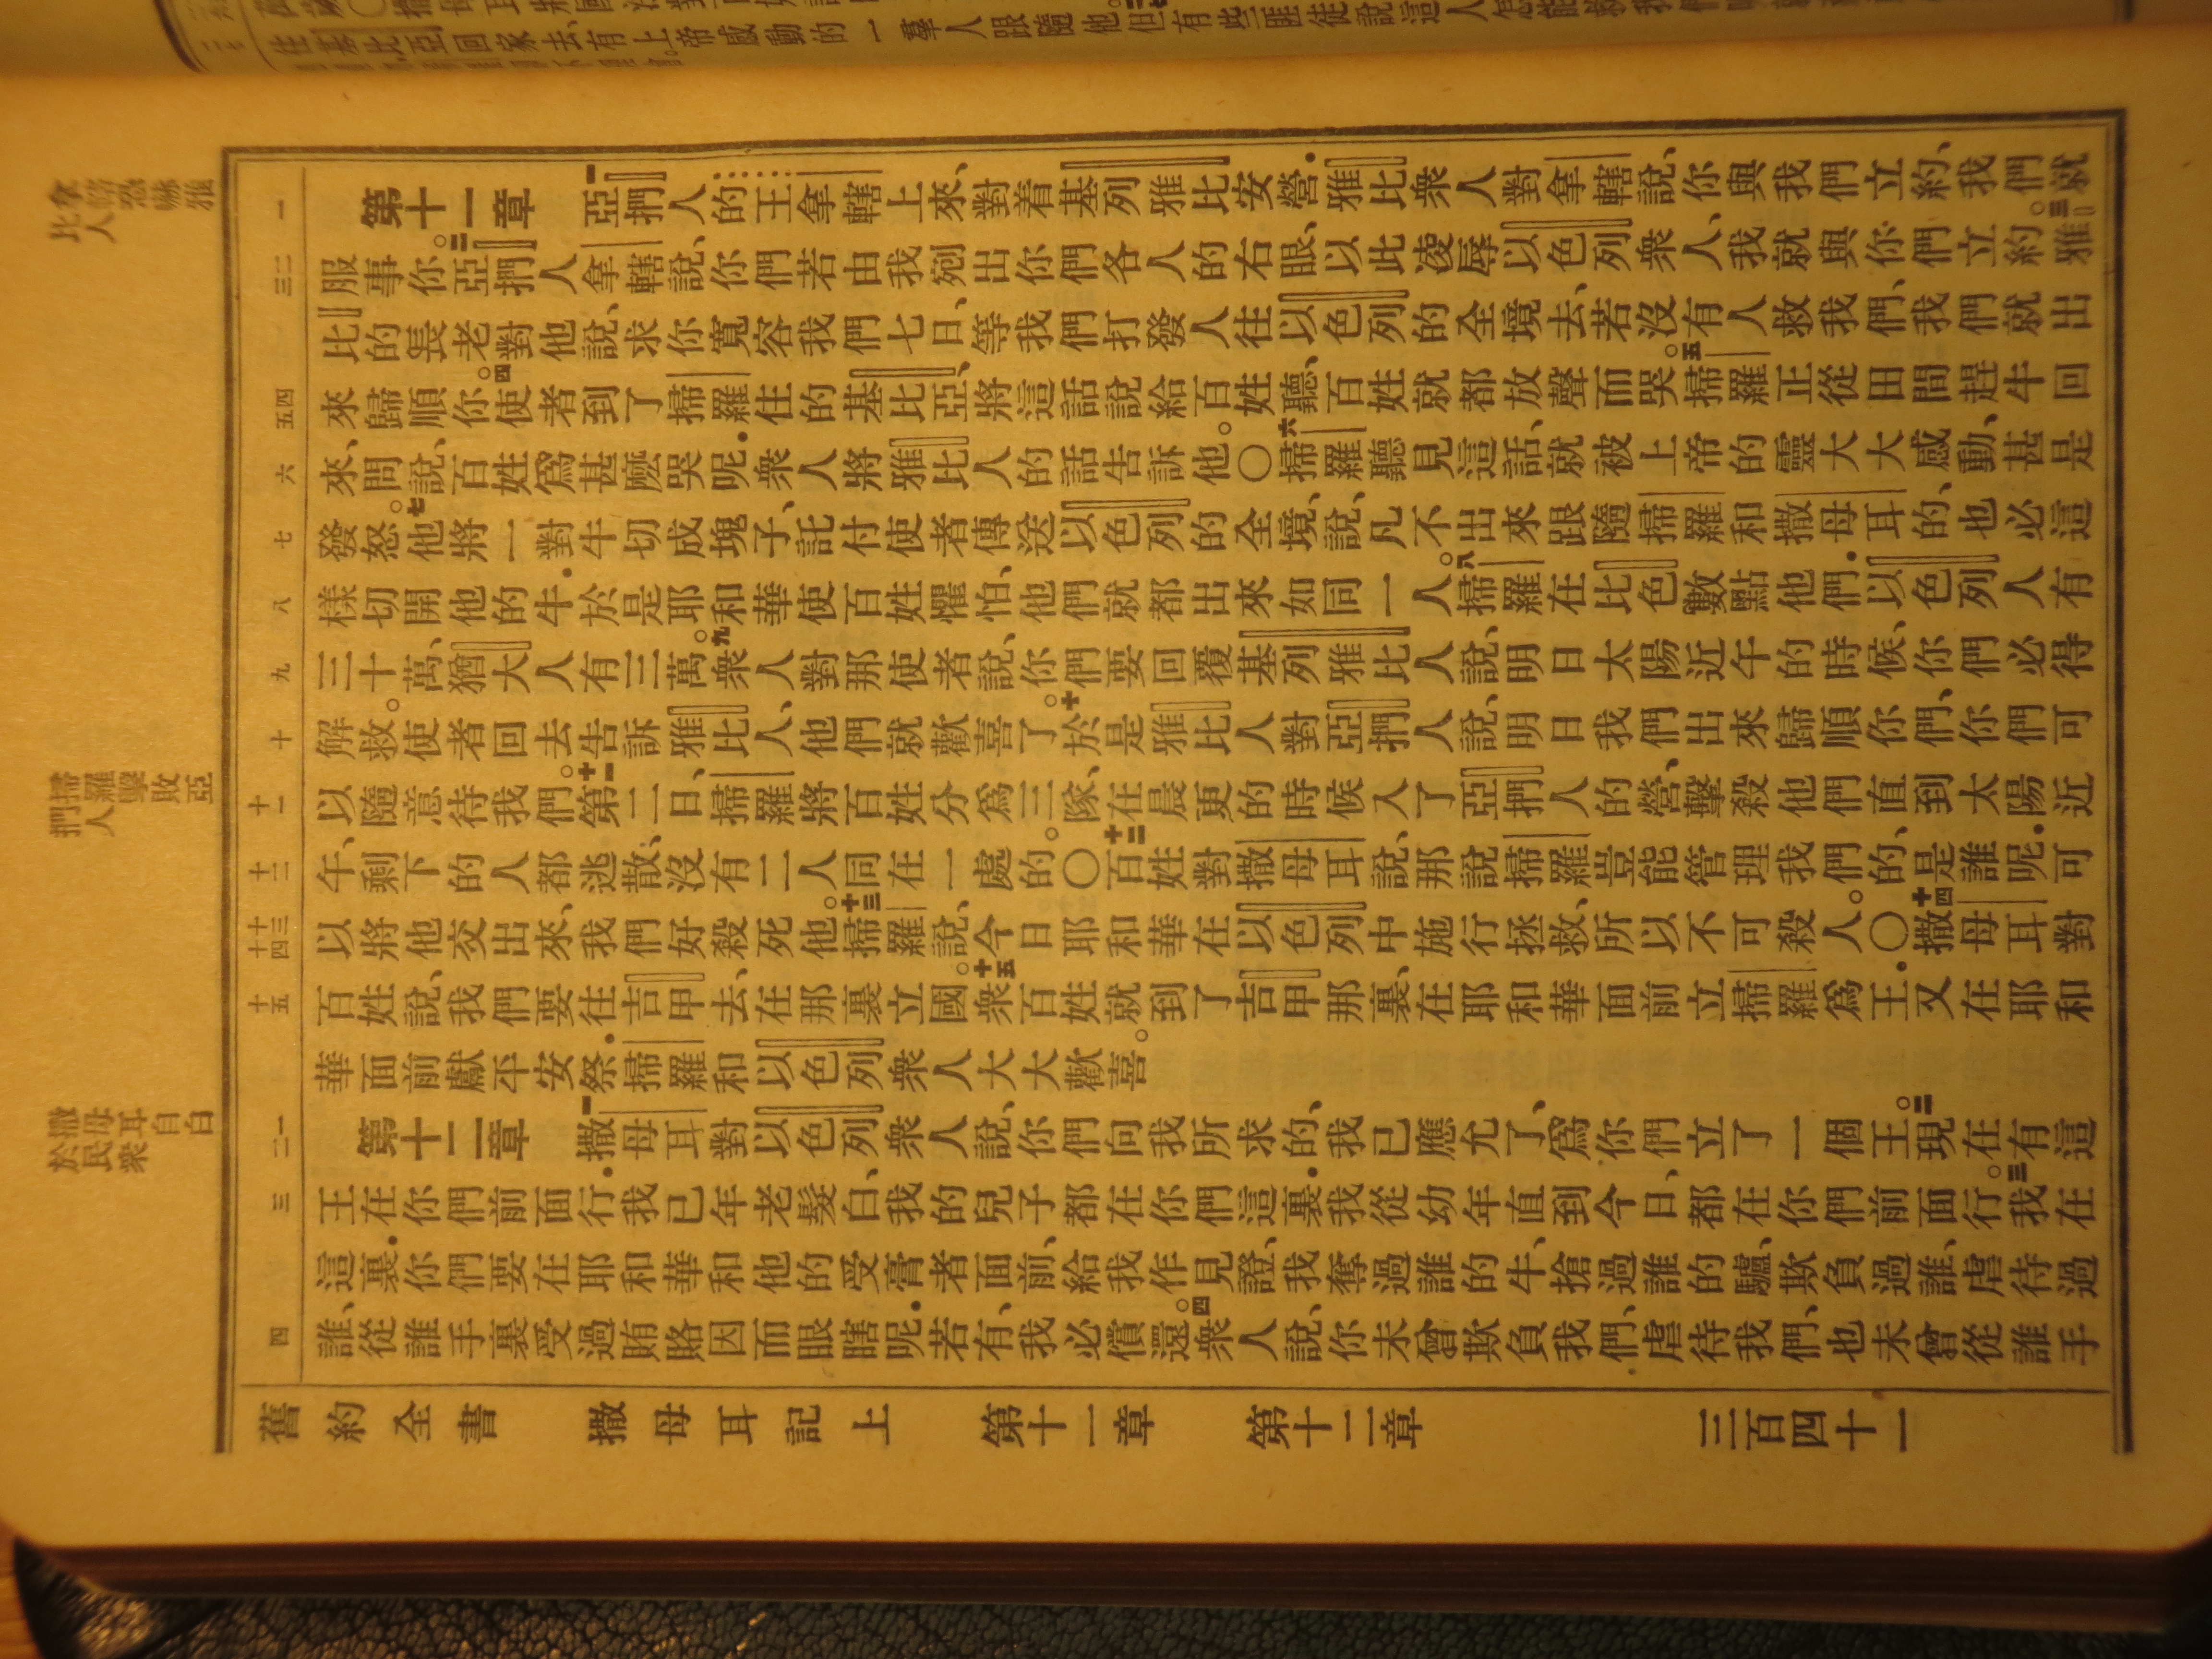 第十一章 一亞捫人的王拿轄上來、對着基列雅比安營.雅比衆人對拿轄說、你與我們立約、我們就
服事你。二亞捫人拿轄說、你們若由我剜出你們各人的右眼、以此凌辱以色列衆人、我就與你們立約。三雅
比的長老對他說、求你寬容我們七日、等我們打發人往以色列的全境去、若沒有人救我們、我們就出
來歸順你。四使者到了掃羅住的基比亞、將這話說給百姓聽、百姓就都放聲而哭。五掃羅正從田間趕牛回
來、問說、百姓爲甚麼哭呢.衆人將雅比人的話告訴他。〇六掃羅聽見這話、就被上帝的靈大大感動、甚是
發怒。七他將一對牛切成塊子、託付使者傳送以色列的全境、說、凡不出來跟隨掃羅和撒母耳的、也必這
樣切開他的牛.於是耶和華使百姓懼怕、他們就都出來如同一人。八掃羅在比色數點他們.以色列人有
三十萬、猶大人有三萬。九衆人對那使者說、你們要回覆基列雅比人說、明日太陽近午的時候、你們必得
解救。使者回去告訴雅比人、他們就歡喜了。十於是雅比人對亞捫人說、明日我們出來歸順你們、你們可
以隨意待我們。十一第二日、掃羅將百姓分爲三隊、在晨更的時候入了亞捫人的營、擊殺他們直到太陽近
午、剩下的人都逃散、沒有二人同在一處的。〇十二百姓對撒母耳說、那說掃羅豈能管理我們的、是誰呢.可
以將他交出來、我們好殺死他。十三掃羅說、今日耶和華在以色列中施行拯救、所以不可殺人。〇十四撒母耳對
百姓說、我們要往吉甲去、在那裏立國。十五衆百姓就到了吉甲那裏、在耶和華面前立掃羅爲王.又在耶和
華面前獻平安祭.掃羅和以色列衆人大大歡喜。
第十二章 一撒母耳對以色列衆人說、你們向我所求的、我已應允了、爲你們立了一個王。二現在有這
王在你們前面行.我已年老髮白、我的兒子都在你們這裏.我從幼年直到今日、都在你們前面行。三我在
這裏.你們要在耶和華和他的受膏者面前、給我作見證、我奪過誰的牛、搶過誰的驢、欺負過誰、虐待過
誰、從誰手裏受過賄賂因而眼瞎呢.若有、我必償還。四衆人說、你未曾欺負我們、虐待我們、也未曾從誰手
舊約全書 撒母耳記上 第十一章 第十二章 三百四十一
拿轄恐嚇雅
比人
掃羅擊敗亞
捫人
撒母耳自白
於民衆
一
二三
四五
六
七
八
九
十
十一
十二
十三十四
十五
一二
三
四